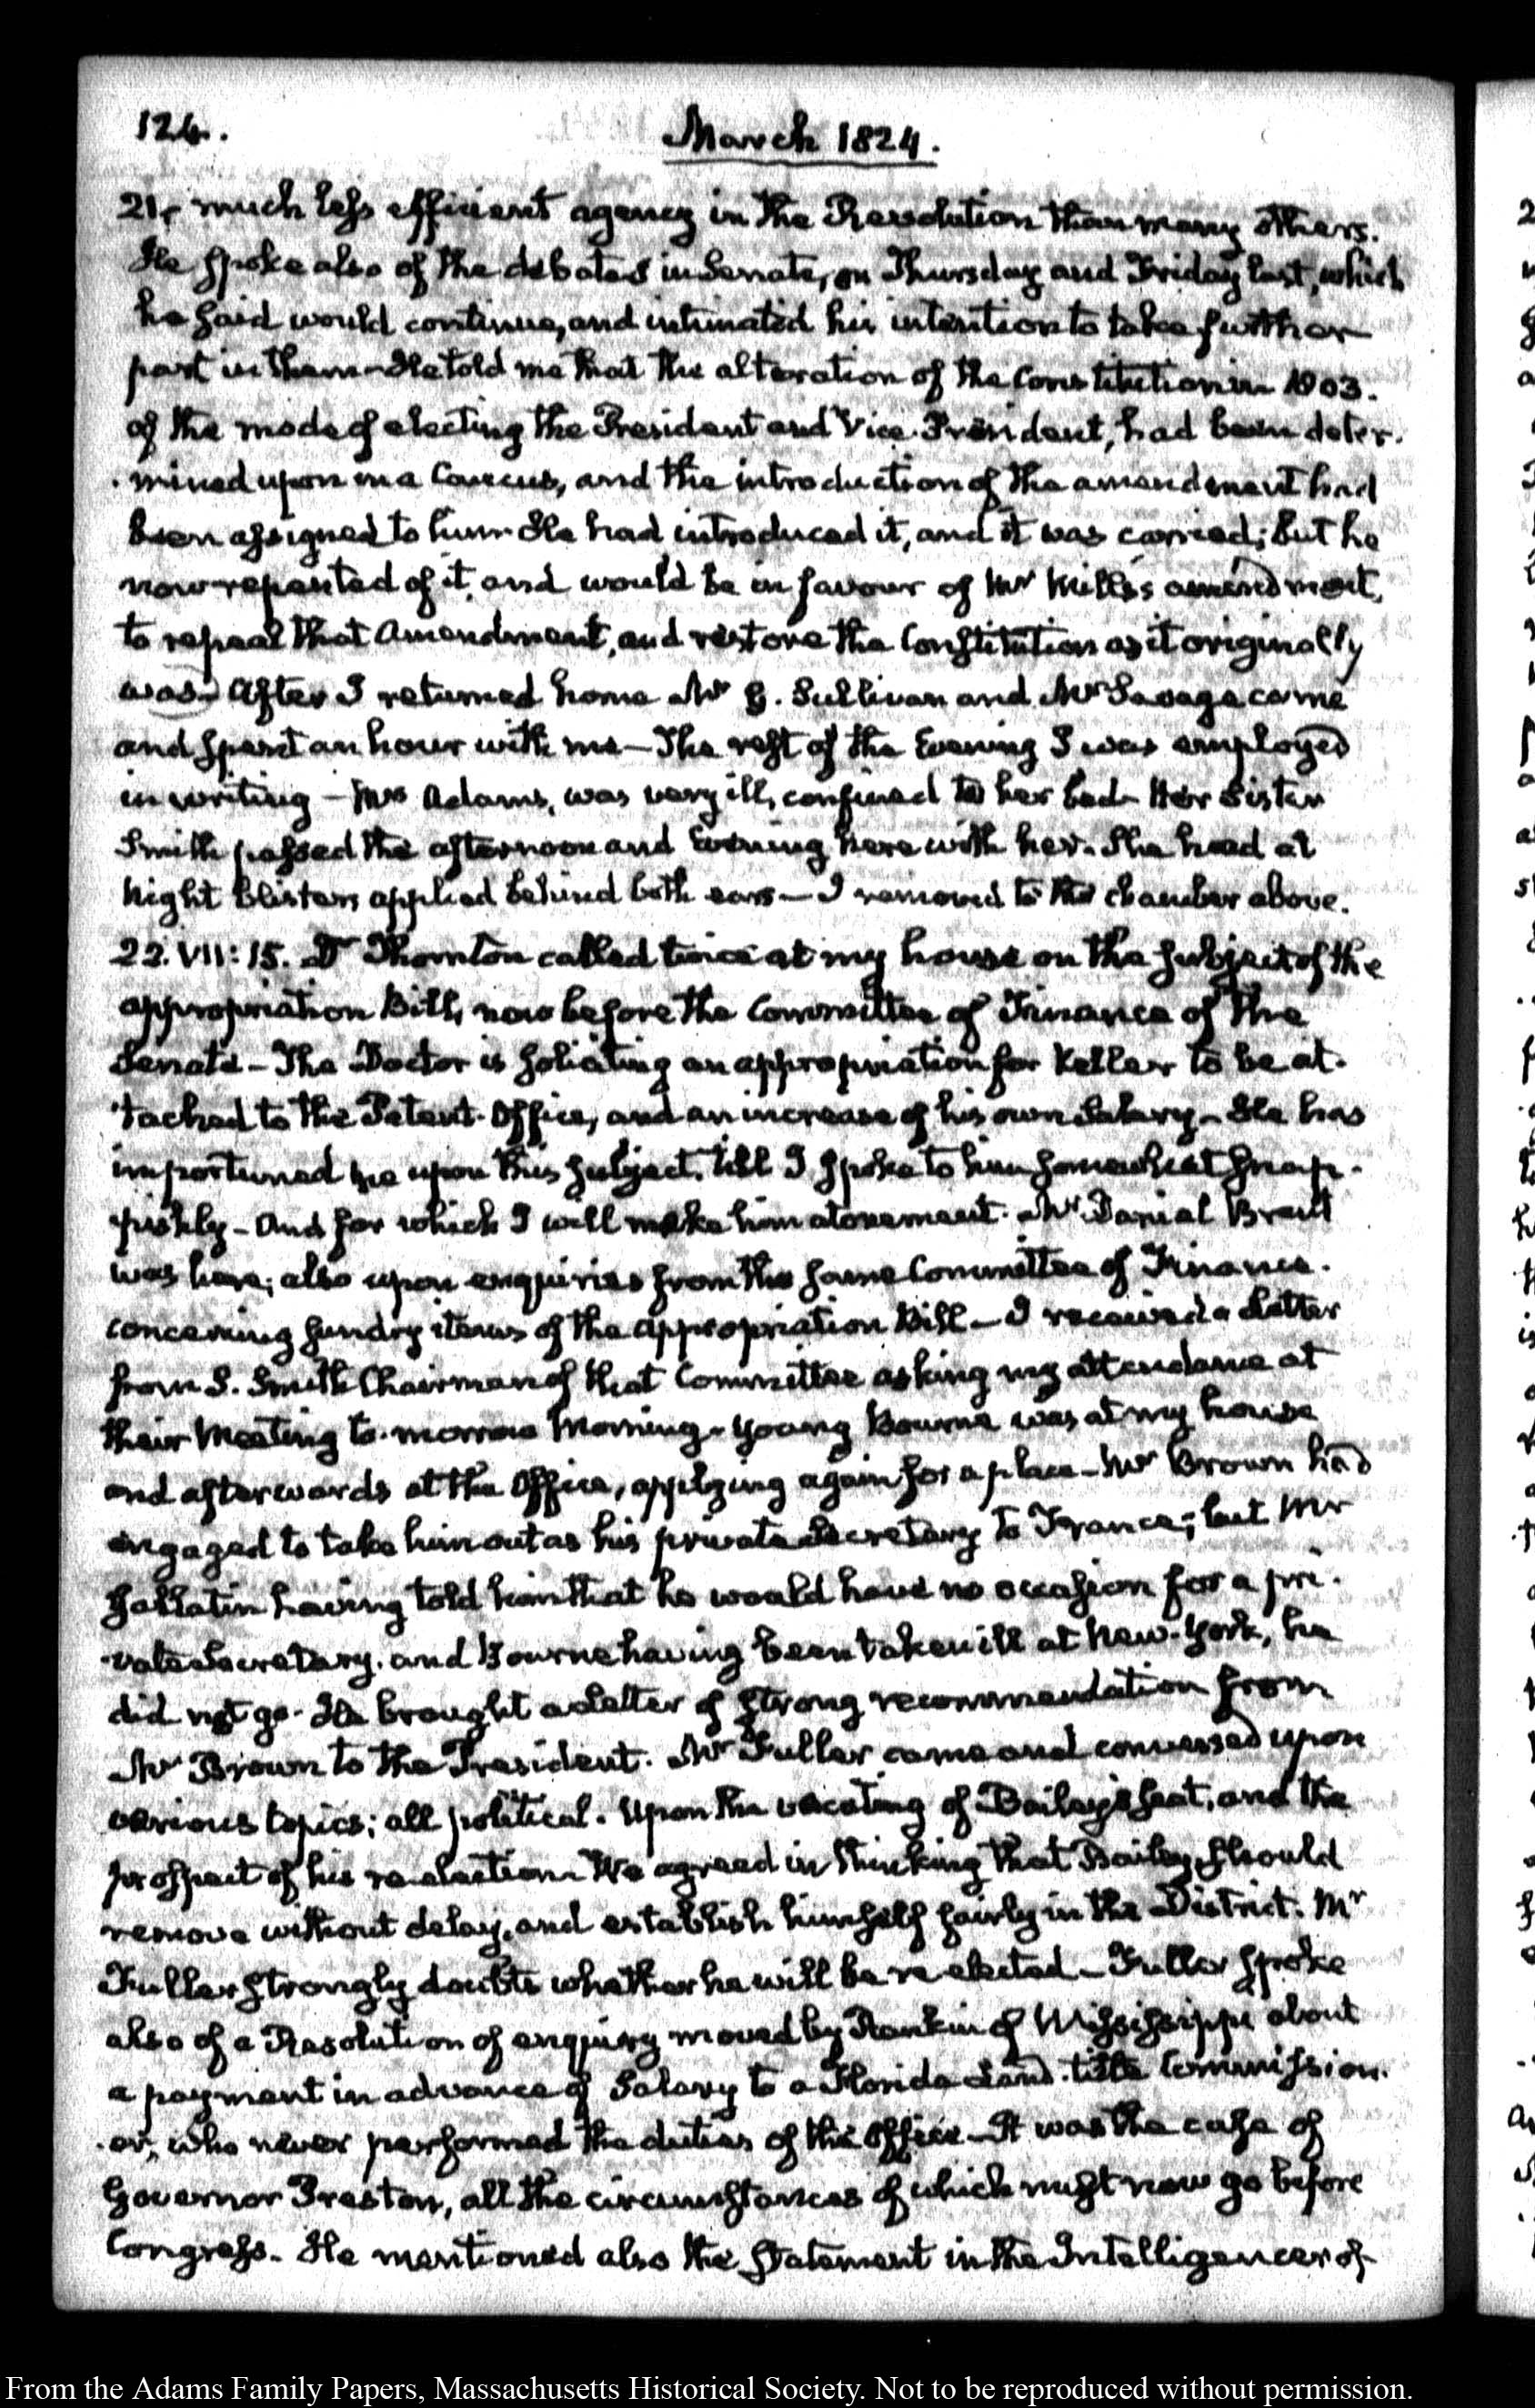 124.
March 1824.
21. much less efficient agency in the Revolution than many others.
He spoke also of the debates in Senate, on Thursday and Friday last, which
he said would continue, and intimated his intention to take further
part in them. He told me that the alteration of the Constitution in 1803.
of the mode of electing the President and Vice-President, had been deter-
-mined upon in a Caucus, and the introduction of the amendment had
been assigned to him. He had introduced it, and it was carried; but he
now repented of it, and would be in favour of Mr Mills's amendment,
to repeal that Amendment, and restore the Constitution as it originally
was. After I returned home Mr G. Sullivan and Mr Savage came
and spent an hour with me— The rest of the Evening I was employed
in writing— Mrs Adams, was very ill, confined to her bed. Her Sister
Smith passed the afternoon and Evening here with her. She had at
Night blisters applied behind both ears— I removed to the chamber above.
22. VII: 15. Dr Thornton called twice at my house on the subject of the
appropriation Bill, now before the Committee of Finance of the
Senate— The Doctor is soliciting an appropriation for Keller to be at-
-tached to the Patent-Office, and an increase of his own Salary— He has
importuned me upon this subject, till I spoke to him somewhat snap-
-pishly— And for which I will make him atonement. Mr Daniel Brent
was here; also upon enquiries from the same Committee of Finance.
concerning sundry items of the appropriation Bill— I received a Letter
from S. Smith Chairman of that Committee asking my attendance at
their Meeting to-morrow Morning. Young Bourne was at my house
and afterwards at the Office, applying again for a place— Mr Brown had
engaged to take him out as his private Secretary to France; but Mr
Gallatin having told him that he would have no occasion for a pri-
-vate Secretary, and Bourne having been taken ill at New-York, he
did not go. He brought a Letter of strong recommendation from
Mr Brown to the President. Mr Fuller came and conversed upon
various topics; all political. Upon the vacating of Bailey's seat, and the
prospect of his re-election. We agreed in thinking that Bailey should
remove without delay, and establish himself fairly in the District. Mr
Fuller strongly doubts whether he will be re-elected— Fuller spoke
also of a Resolution of enquiry moved by Rankin of Mississippi about
a payment in advance of Salary to a Florida Land-title Commission-
-er, who never performed the duties of the Office— It was the case of
Governor Preston, all the circumstances of which must now go before
Congress. He mentioned also the Statement in the Intelligencer of
From the Adams Family Papers, Massachusetts Historical Society. Not to be reproduced without permission.